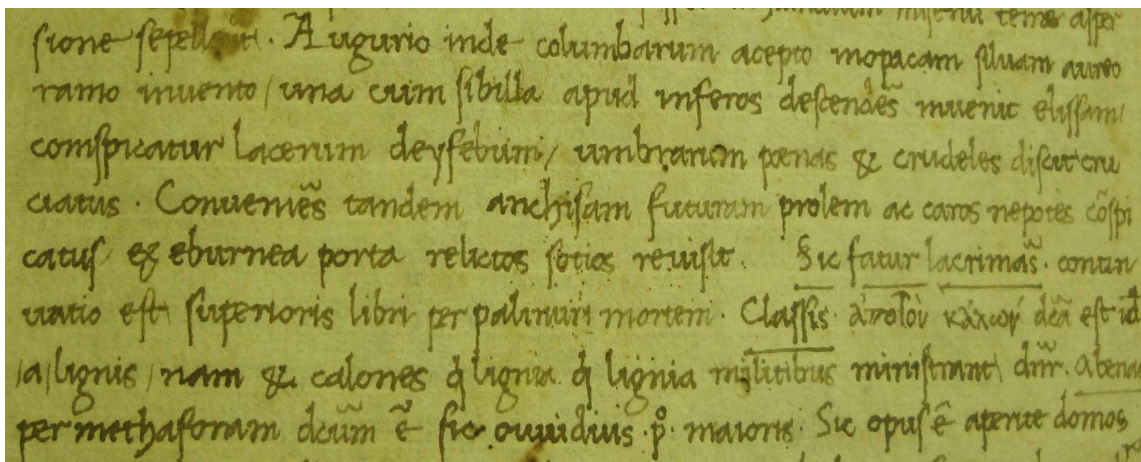 misenum terrae asper
sione sepell t. Augurio inde columbarum acepto inopacam silvam aureo
ramo invento / una cuim sibilla apud inferos descendẽs invenit elissam /
comspicatur lacerum deyfebum / umbrarum poenas & crudeles discit cru
ciatus. Conveniẽs tandem anchisam futuram prolem ac caros nepotes cõspi
catus / ex eburnea porta relictos sotios revisit. Sic fatur lacrimãs. contin
uatio est superioris libri per palinuri mortem. Classis ἀπὸ τοῦ κάλων dcã est id
/ a / lignis / nam & calones q lignia q lignia militibus ministrant dnr̃. abenas
per methaforam dcũm ẽ sic ovvidius. p̊. maioris. Sic opus ẽ aperite domos